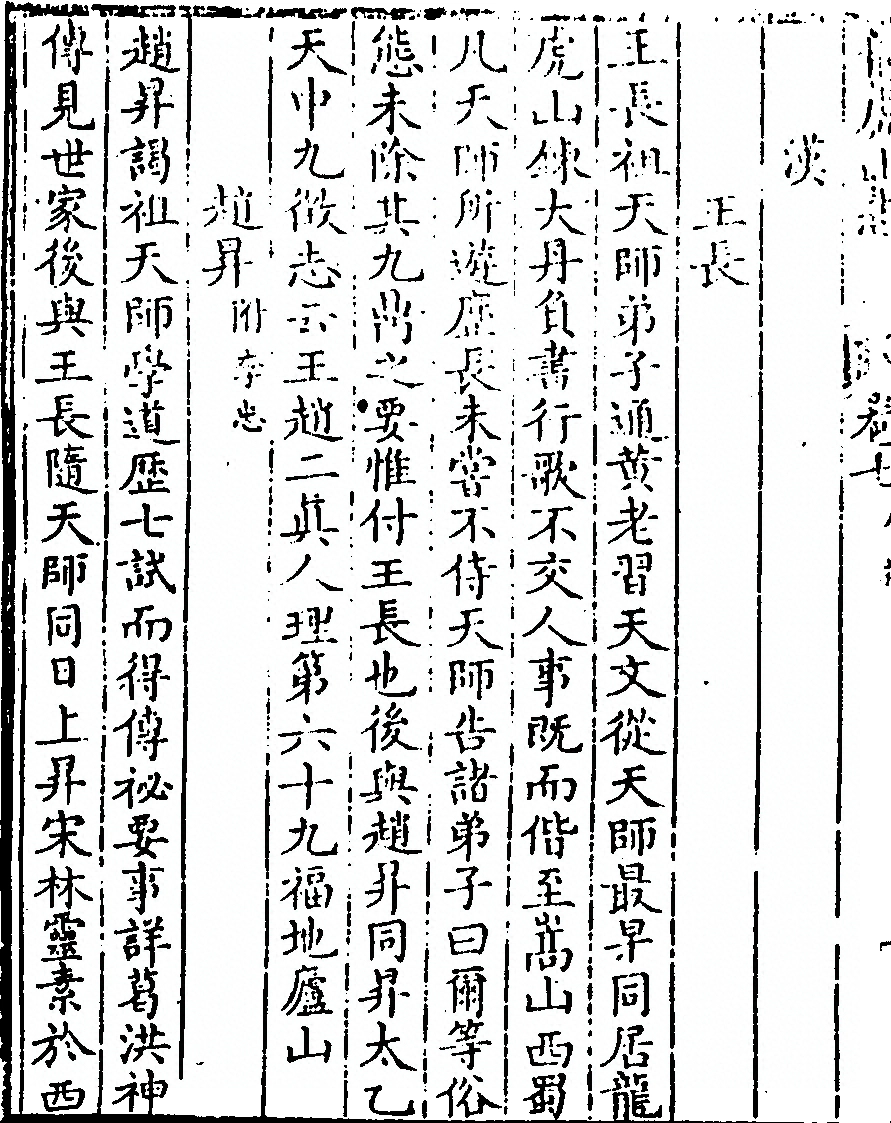 漢
王長
王長祖天師弟子通黄老習天文從天師最早同居龍
虎山錬大丹負書行歌不交人事既而偕至嵩山西蜀
凡天師所遊歷長未嘗不侍天師告諸弟子曰爾等俗
態未除其九鼎之要惟付王長也後與趙昇同昇太乙
天中九微志云王趙二眞人理第六十九福地廬山
趙昇附李忠
趙昇謁祖天師學道歷七試而得傳祕要事詳葛洪神
傳見世家後與王長隨天師同日上昇宋林靈素於西